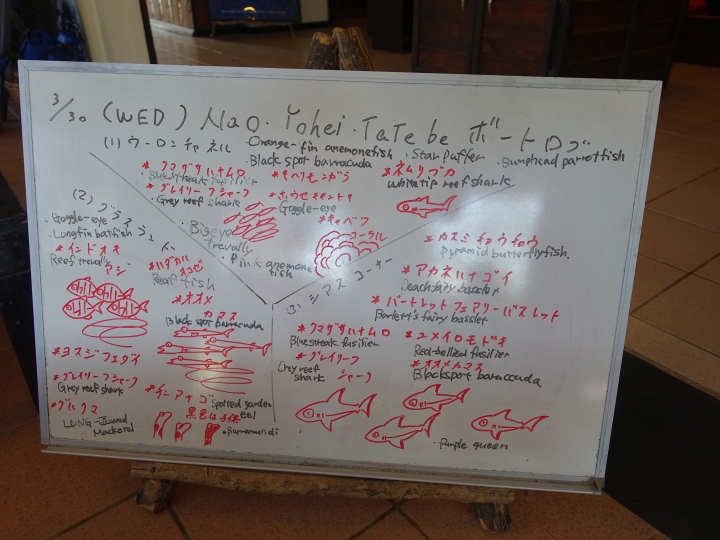 3/30 (WED) Nao・Yohei・TaTe be ボートログ
(1) ウーロンチャネル
・Orange-fin anemonefish ・Star puffer ・Bumphead parrotfish
・Black spot barracuda
* クマザサハナムロ
Bluestreak fusilier
* グレイリーフシャーク
・Grey reef shark
・Bigeye trevally
* キヘリモンガラ
* ホウセキキントキ
Goggle-eye
* キャベツ
コーラル
・Pink anemone fish
* ネムリブカ
white tip reef shark
(2)
・Goggle-eye
・Longfin batfish
* インドオキアジ
Reef trevally
* ヨスジフエダイ
* グレイリーフシャーク
Grey reef shark
* グルクマ
LONG-Jawed Mackerel
* ハダカハオコゼ
leaf fish
* オオメカマス
Black spot barracuda
* チンアナゴ
Spotted garden eel
黒色は子供
・Barramundi
(3) シアスコーナー
* カスミチョウチョウ
Pyramid butterflyfish.
* アカネハナゴイ
Peach fairy basslet
* バートレットフェアリーバスレット
Barlett's fairy basslet
* クマザサハナムロ
Bluestreak fusilier
* グレイリーフシャーク
Grey reef shark
* ユメウメイロモドキ
Red-bellied fusilier
* オオメカマス
Blackspot baraccuda
・Purple queen